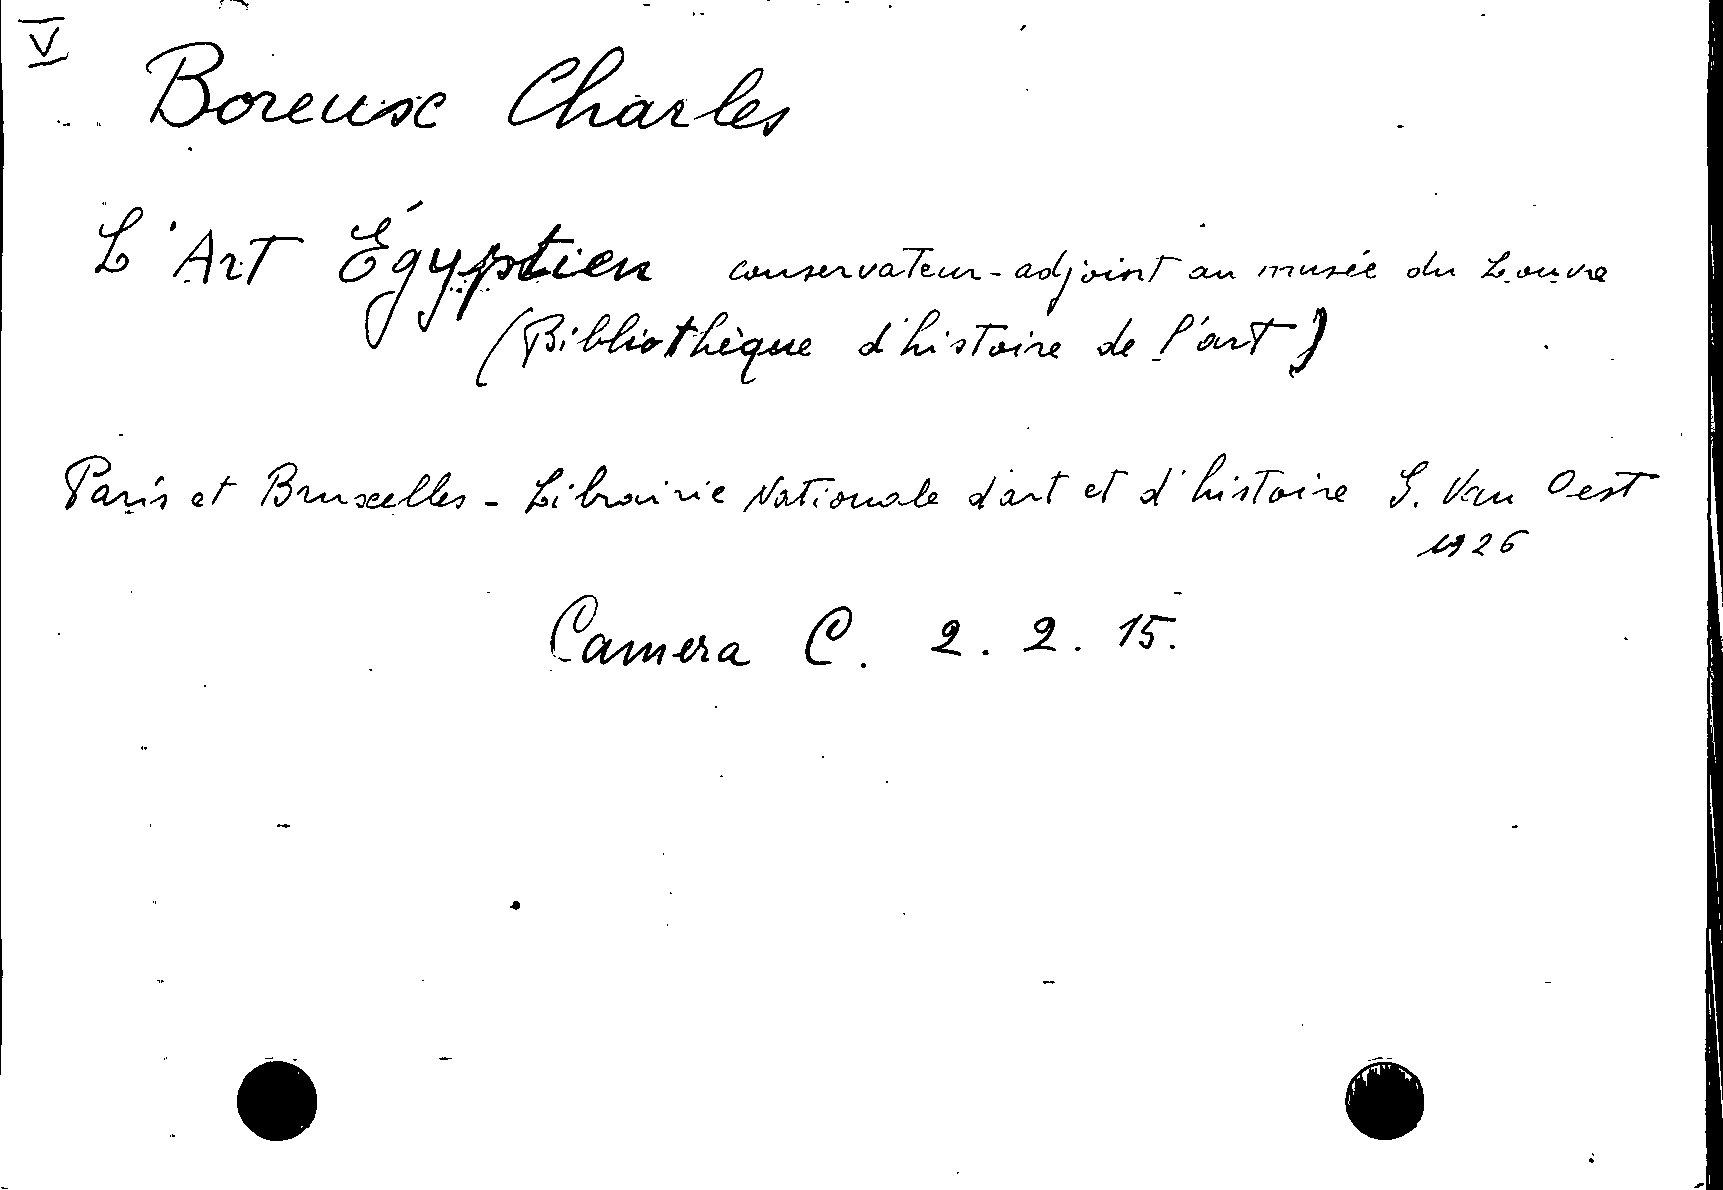 V
Boreux Charles
L'Art Égyptien conservateur-adjoint au musée du Louvre
(Bibliothèque d'histoire de l'art)
Paris et Bruxelles - Librairie Nationale d'art et d'histoire G. Van Oest
1926
Camera C. 2. 2. 15.